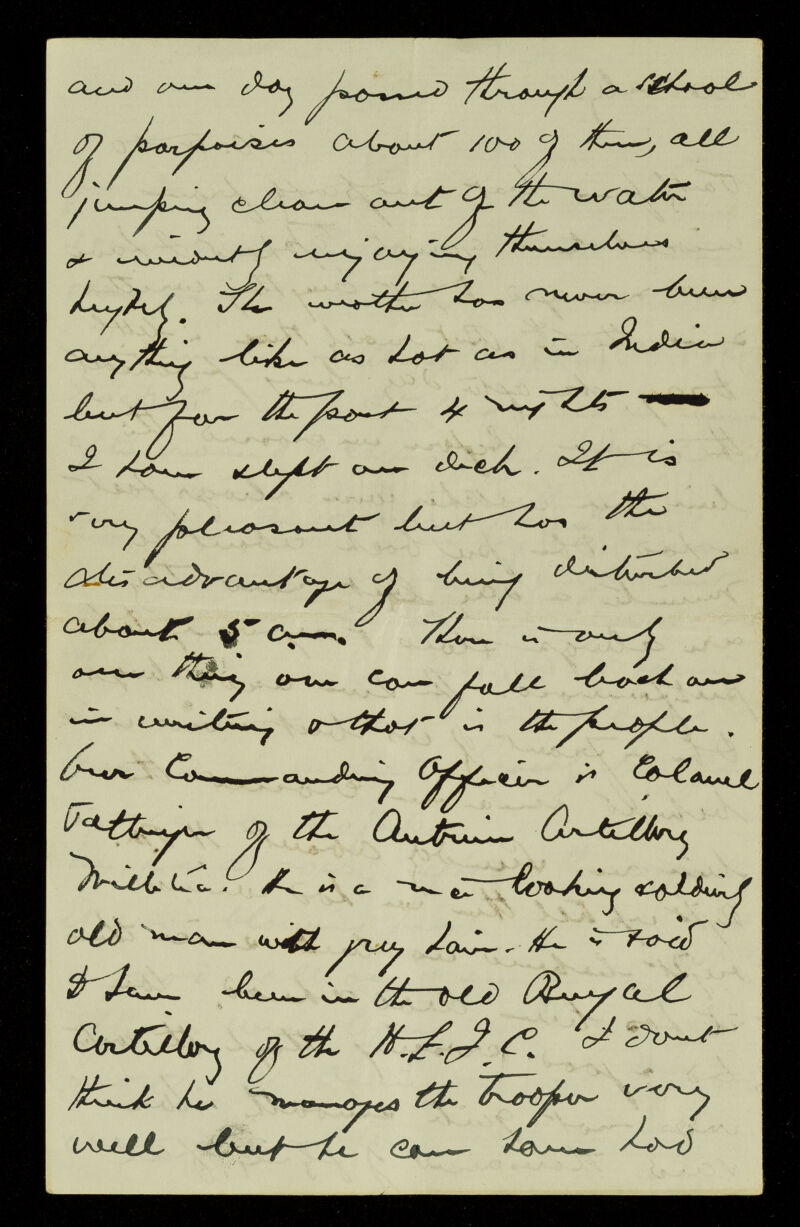 and one day passed through a school
of porpoises about 100 of them, all
jumping clean out of the water
& evidently enjoying themselves
hugely. The weather has never been
anything like as hot as in India
but for the past 4 nights
I have slept on deck. It is
very pleasant but has the
disadvantage of being disturbed
about 5 am. There is only
one thing one can fall back on
in writing & that is the people.
Our Commanding Officer is Colonel
of the Antrim Artillery
Militia. He is a nice looking soldierly
old man with grey hair. He is said
to have been in the old Bengal
Artillery of the H.E.I.C. I dont
think he manages the trooper very
well but he can have had